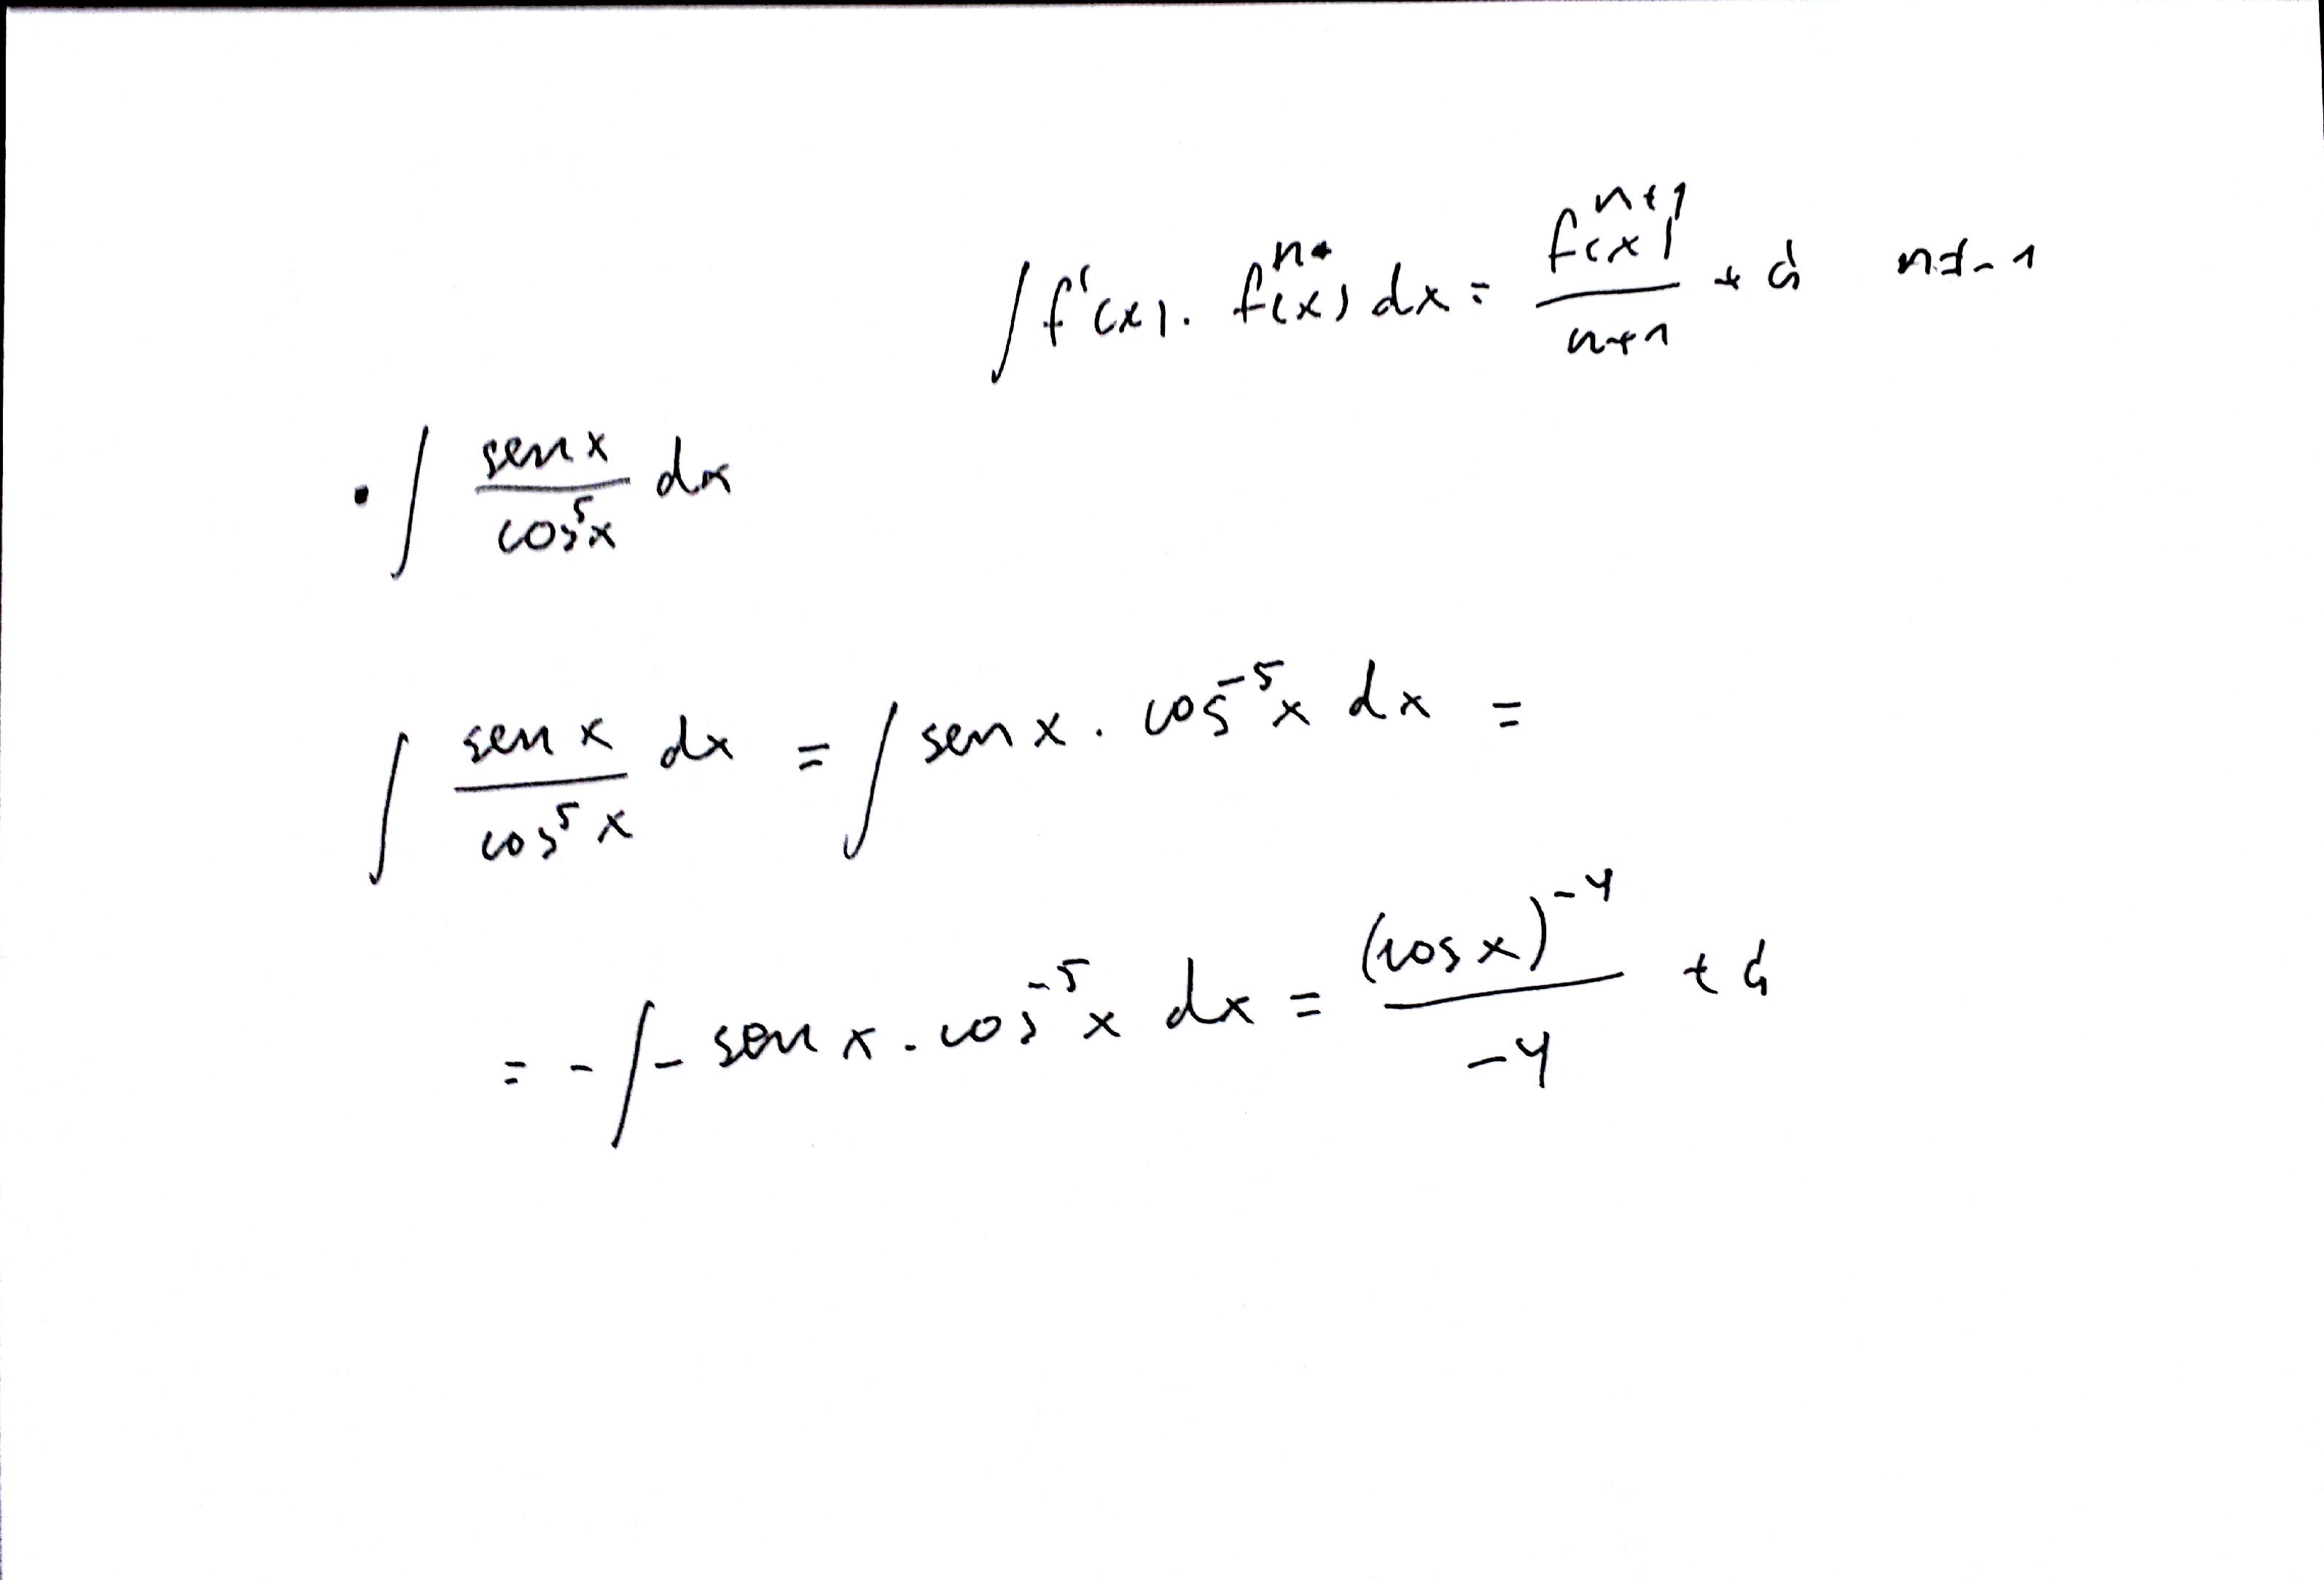 ∫ f'(x). fⁿ(x) dx = f(x)ⁿ⁺¹ / n+1 + C n≠-1
• ∫ sen x / cos⁵x dx
∫ sen x / cos⁵ x dx = ∫ sen x . cos⁻⁵x dx =
= - ∫ - sen x . cos⁻⁵x dx = (cos x)⁻⁴ / -4 + C